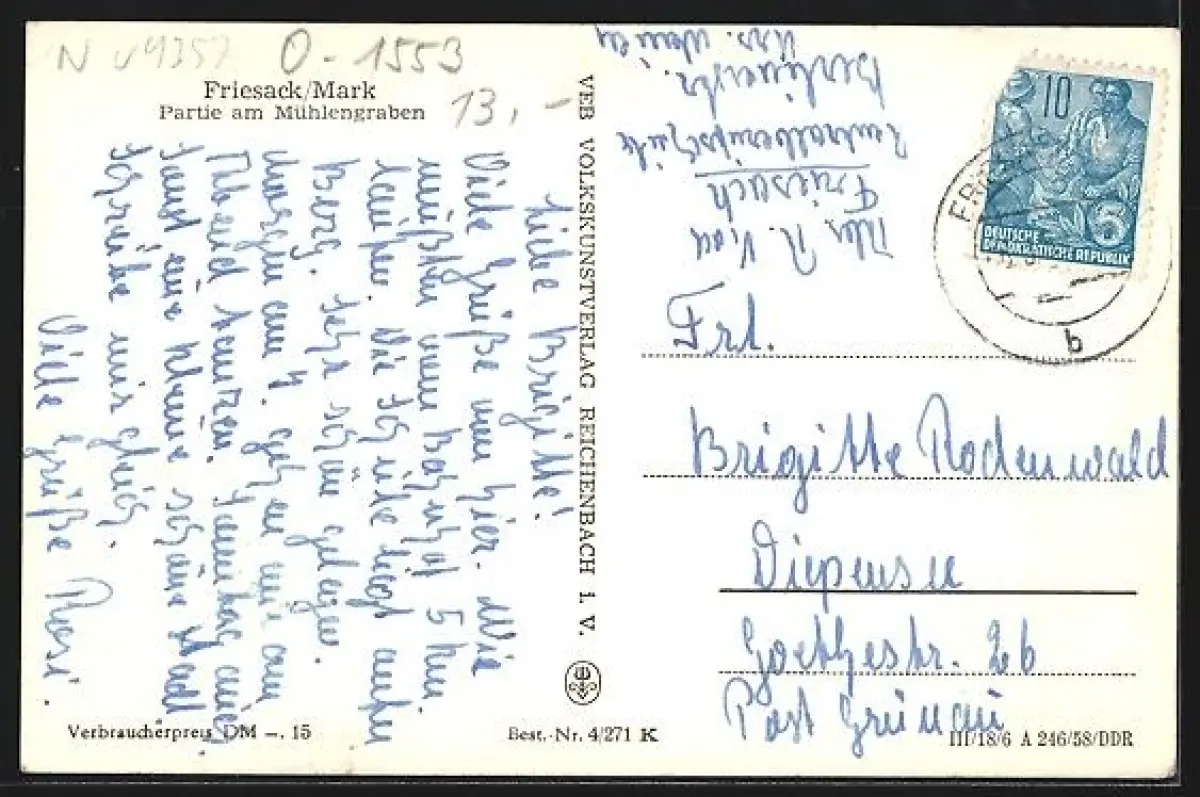 N v4357 O-1553
13,-
Friesack/Mark
Partie am Mühlengraben
Liebe Brigitte!
Viele Grüße von hier. Wie
mußten vom Bahnhof 5 km
laufen. Die Schule liegt auf'm
Berg. Sehr schön gelegen.
Morgen um 7. gehen wir am
Abend tanzen.
Sonst eine kleine schöne Stadt
Schreibe mir gleich.
Viele Grüße Rosi.
VEB VOLKSKUNSTVERLAG REICHENBACH I. V.
Verbraucherpreis DM -. 15
Best.-Nr. 4/271 K
Abs. R.
Friesack
Zentralberufsschule
Berlinerstr.
10
DEUTSCHE
DEMOKRATISCHE REPUBLIK
5
b
Frl.
Brigitte Rodenwald
Diepensee
Goethestr. 26
Post Grünau
III/18/6 A 246/58/DDR